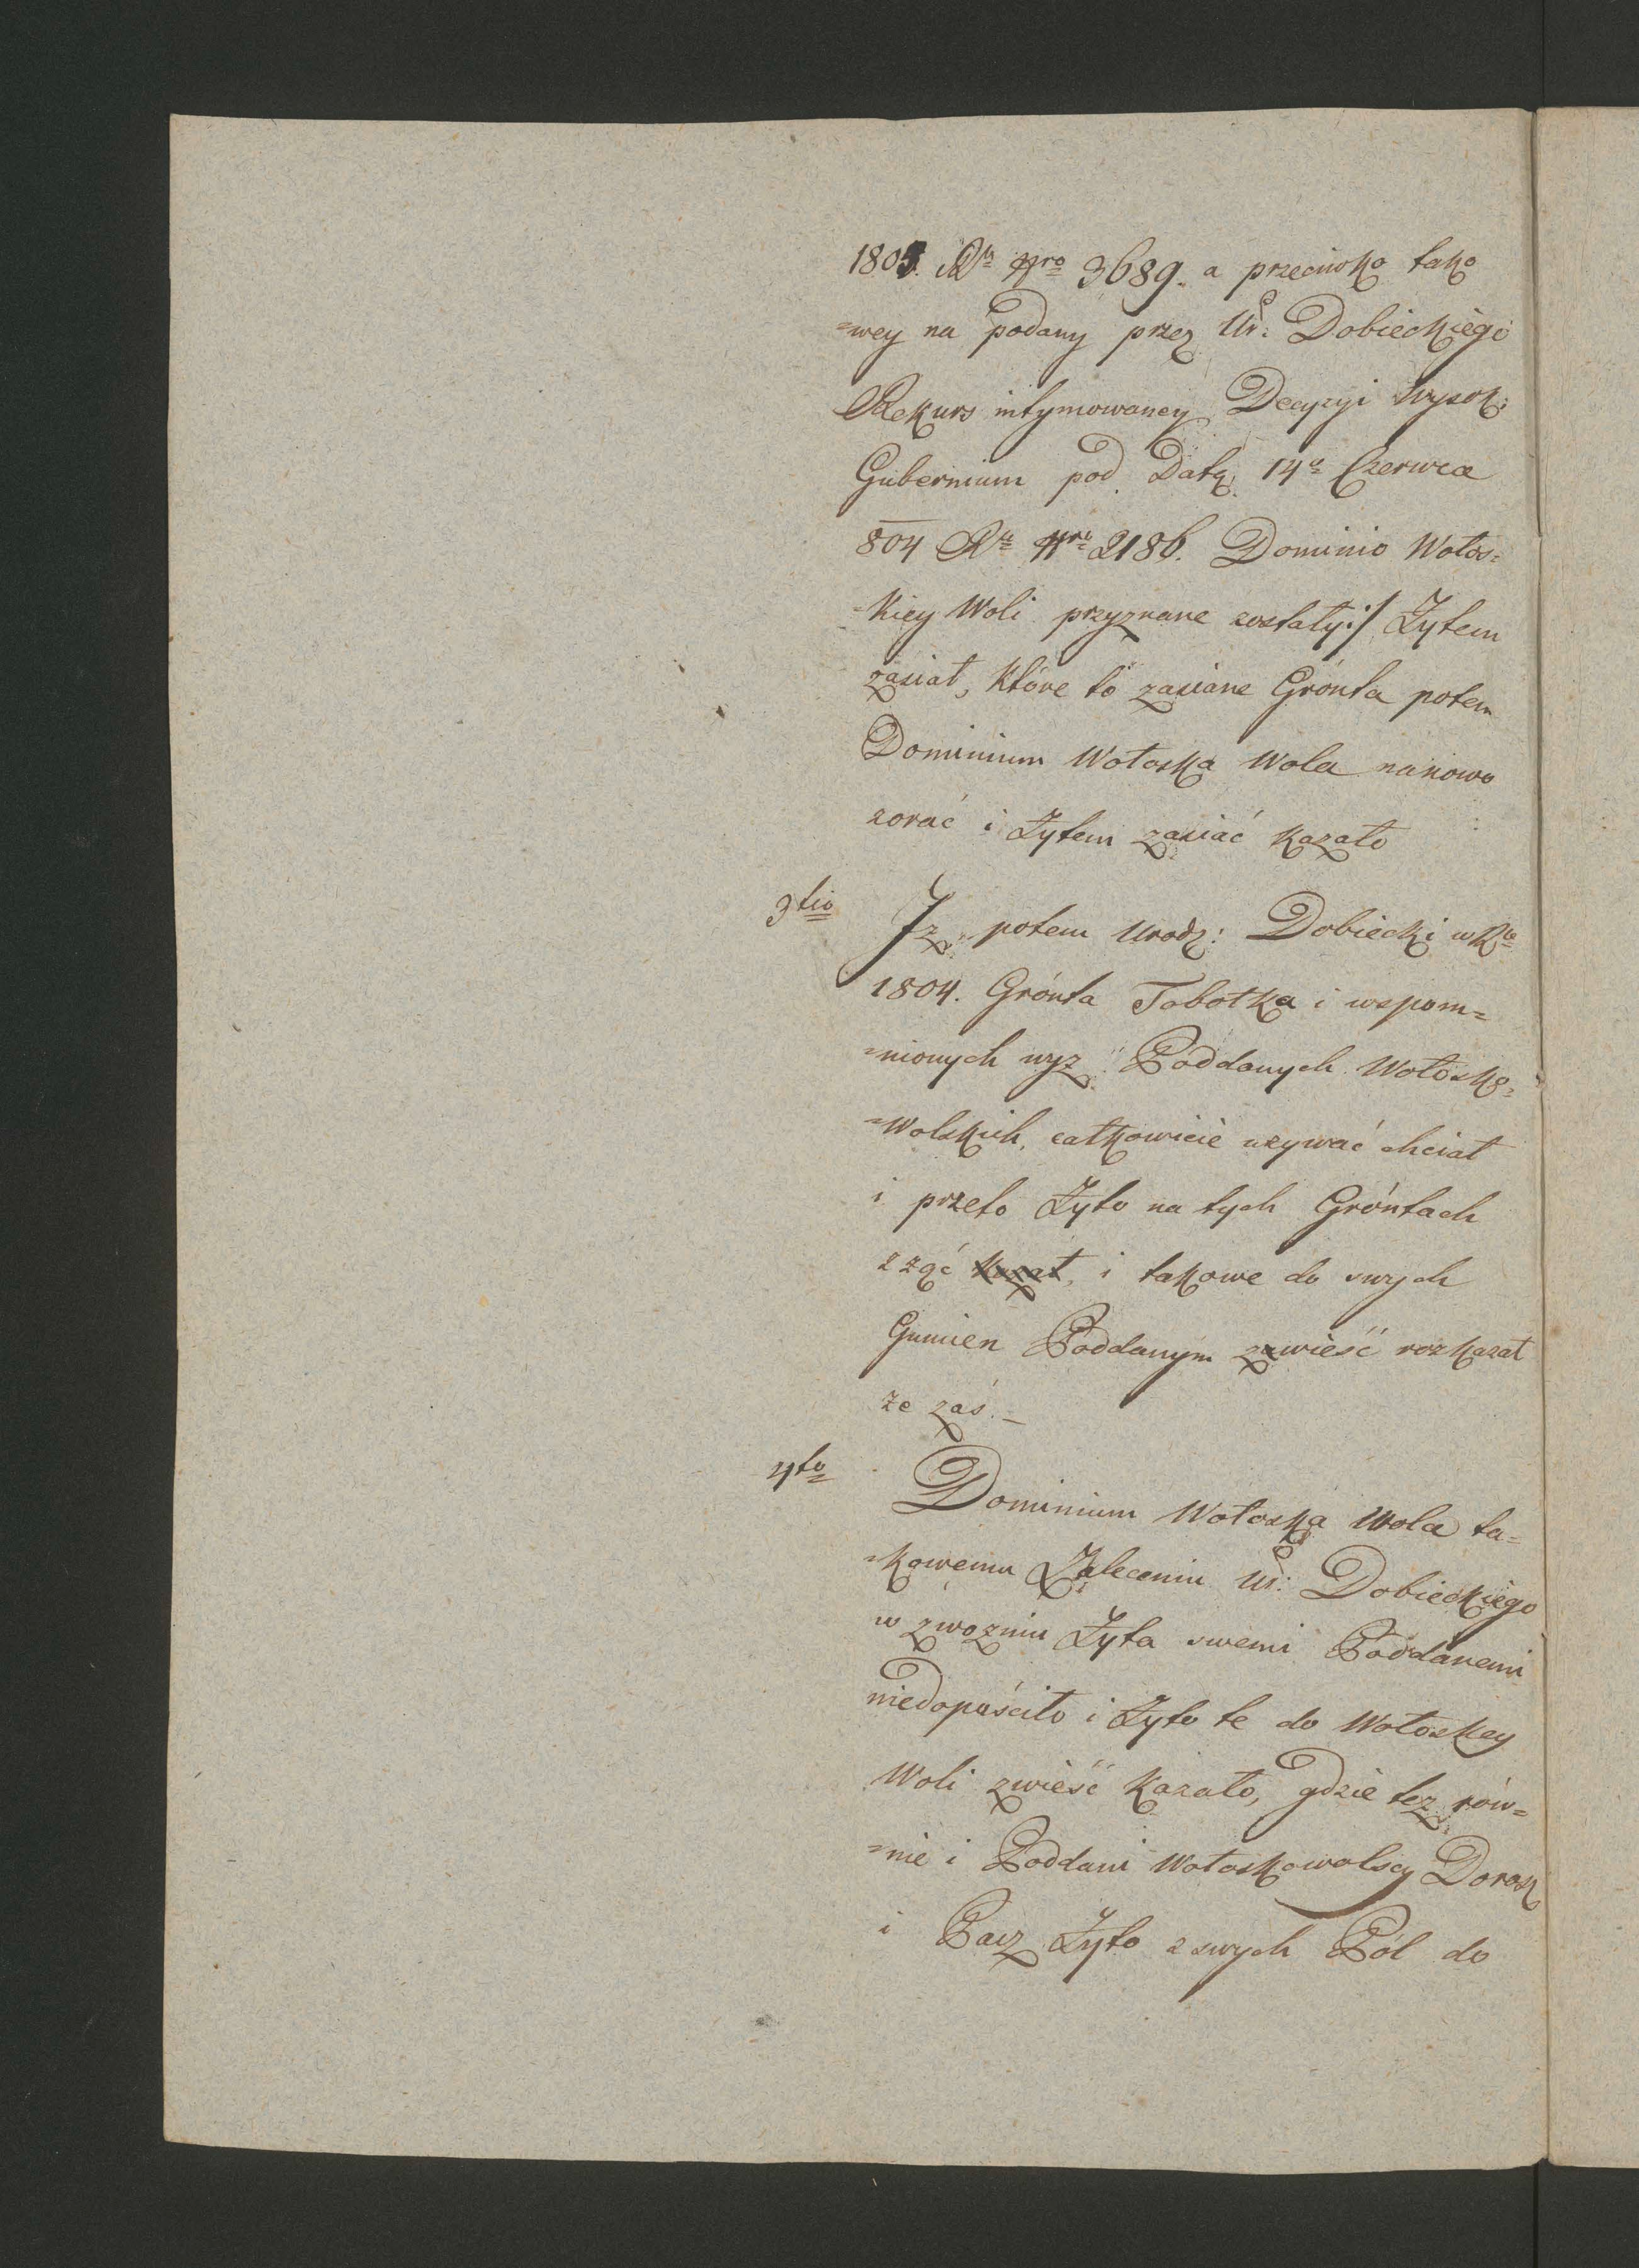 1803. Ru Nro 3689. a przeciwko tako
=wey na podany przez Ur: Dobieckiego
Rekurs intymowaney Decyzyi Wysok:
Gubernium pod Datą 14a Czerwca
804 Ru Nro 2186. Dominio Wołos=
=kiey Woli przyznane zostały:/ Żytem
zasiał, które to zasiane Grónta potem
Dominium Wołoska Wola nanowo
zorać i Żytem zasiać kazało
3tio Iż potem Urodz: Dobiecki w Ru
1804. Grónta Tobołka i wspom=
=nionych wyz Poddanych Wołosko=
=Wolskich, całkowicie uzywać chciał
i przeto Żyto na tych Gróntach
zząć kazał, i takowe do swych
Gumien Poddanym zwieść rozkazał
że zaś.—
4to Dominium Wołoska Wola ta=
=kowemu Zaleceniu Ur: Dobieckiego
w zwozniu Żyta swemi Poddanemi
niedopuściło i Żyto te do Wołoskey
Woli zwieść kazało, gdzie też rów=
=nie i Poddani Wołoskowolscy Dorosz
i Pacz Żyto z swych Pól do